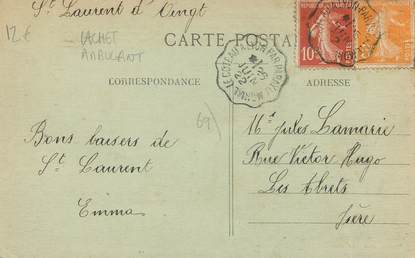 St Laurent d'Oingt
12 €
CACHET
AMBULANT
CARTE POSTALE
CORRESPONDANCE
ADRESSE
10
69
Bons baisers de
St Laurent
Emma
Mr Jules Lamarie
Rue Victor Hugo
Les Abrets
Isère